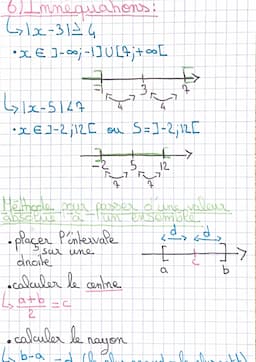 6/ Innequations:
↳ |x-3| ≥ 4
• x ∈ ]-∞;-1] U [7;+∞[
-1 3 7
4 4
↳ |x-5| < 7
• x ∈ ]-2;12[ ou S = ]-2;12[
-2 5 12
7 7
Méthode pour passer d'une valeur
absolue à un ensemble
• plaçer l'intervale
sur une
droite
d d
a c b
• calculer le centre
↳ a+b/2 = c
• calculer le rayon
↳ b-a = d